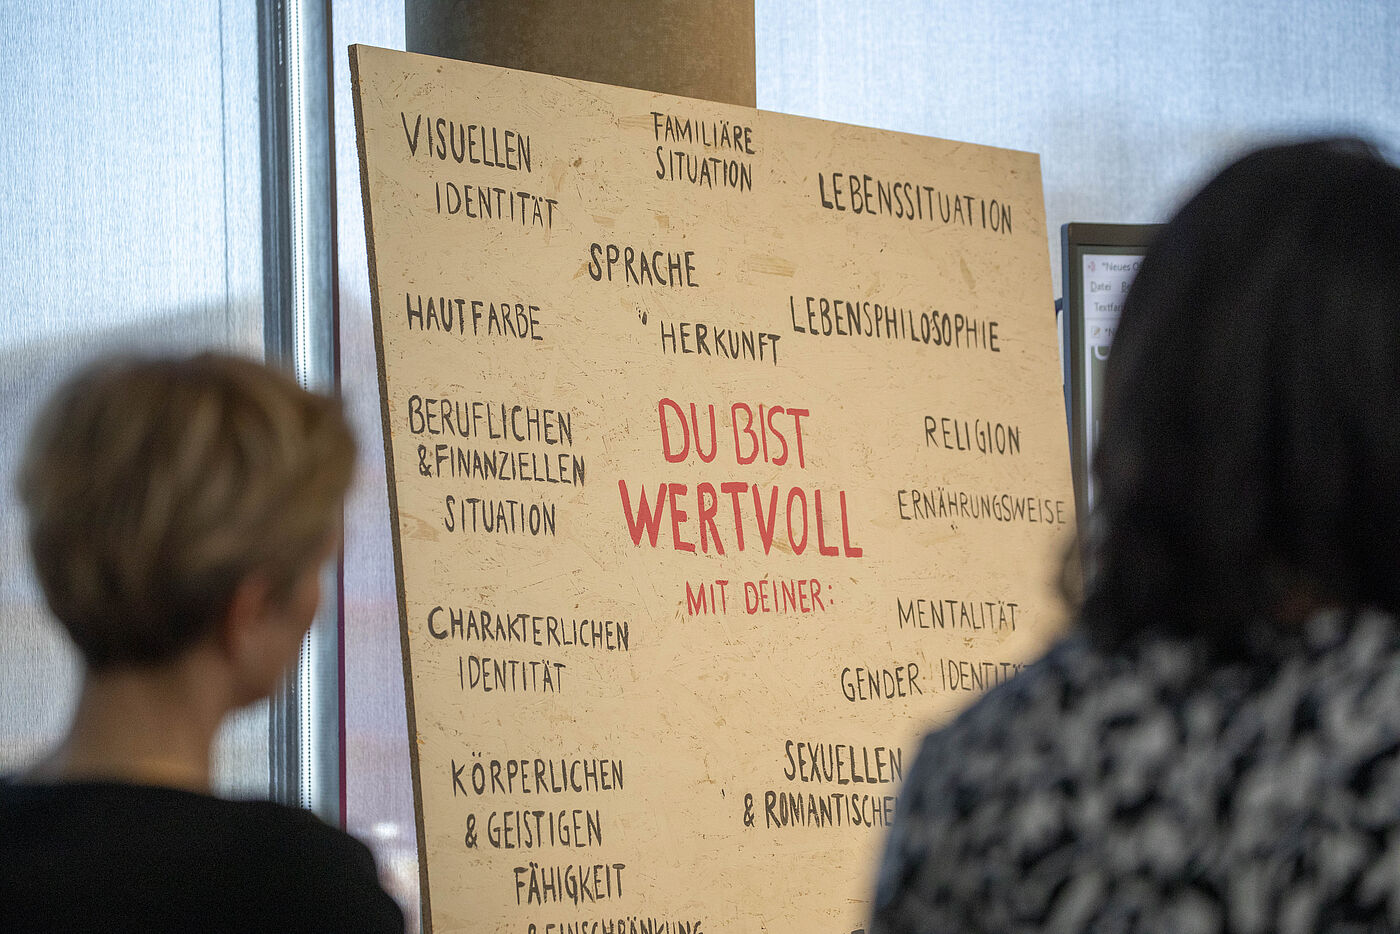 VISUELLEN
IDENTITÄT
FAMILIÄRE
SITUATION
LEBENSSITUATION
SPRACHE
HAUTFARBE
HERKUNFT
LEBENSPHILOSOPHIE
BERUFLICHEN
& FINANZIELLEN
SITUATION
DU BIST
WERTVOLL
MIT DEINER:
RELIGION
ERNÄHRUNGSWEISE
CHARAKTERLICHEN
IDENTITÄT
MENTALITÄT
GENDER IDENTITÄT
KÖRPERLICHEN
& GEISTIGEN
FÄHIGKEIT
& EINSCHRÄNKUNG
SEXUELLEN
& ROMANTISCHEN
"Neues
Datei